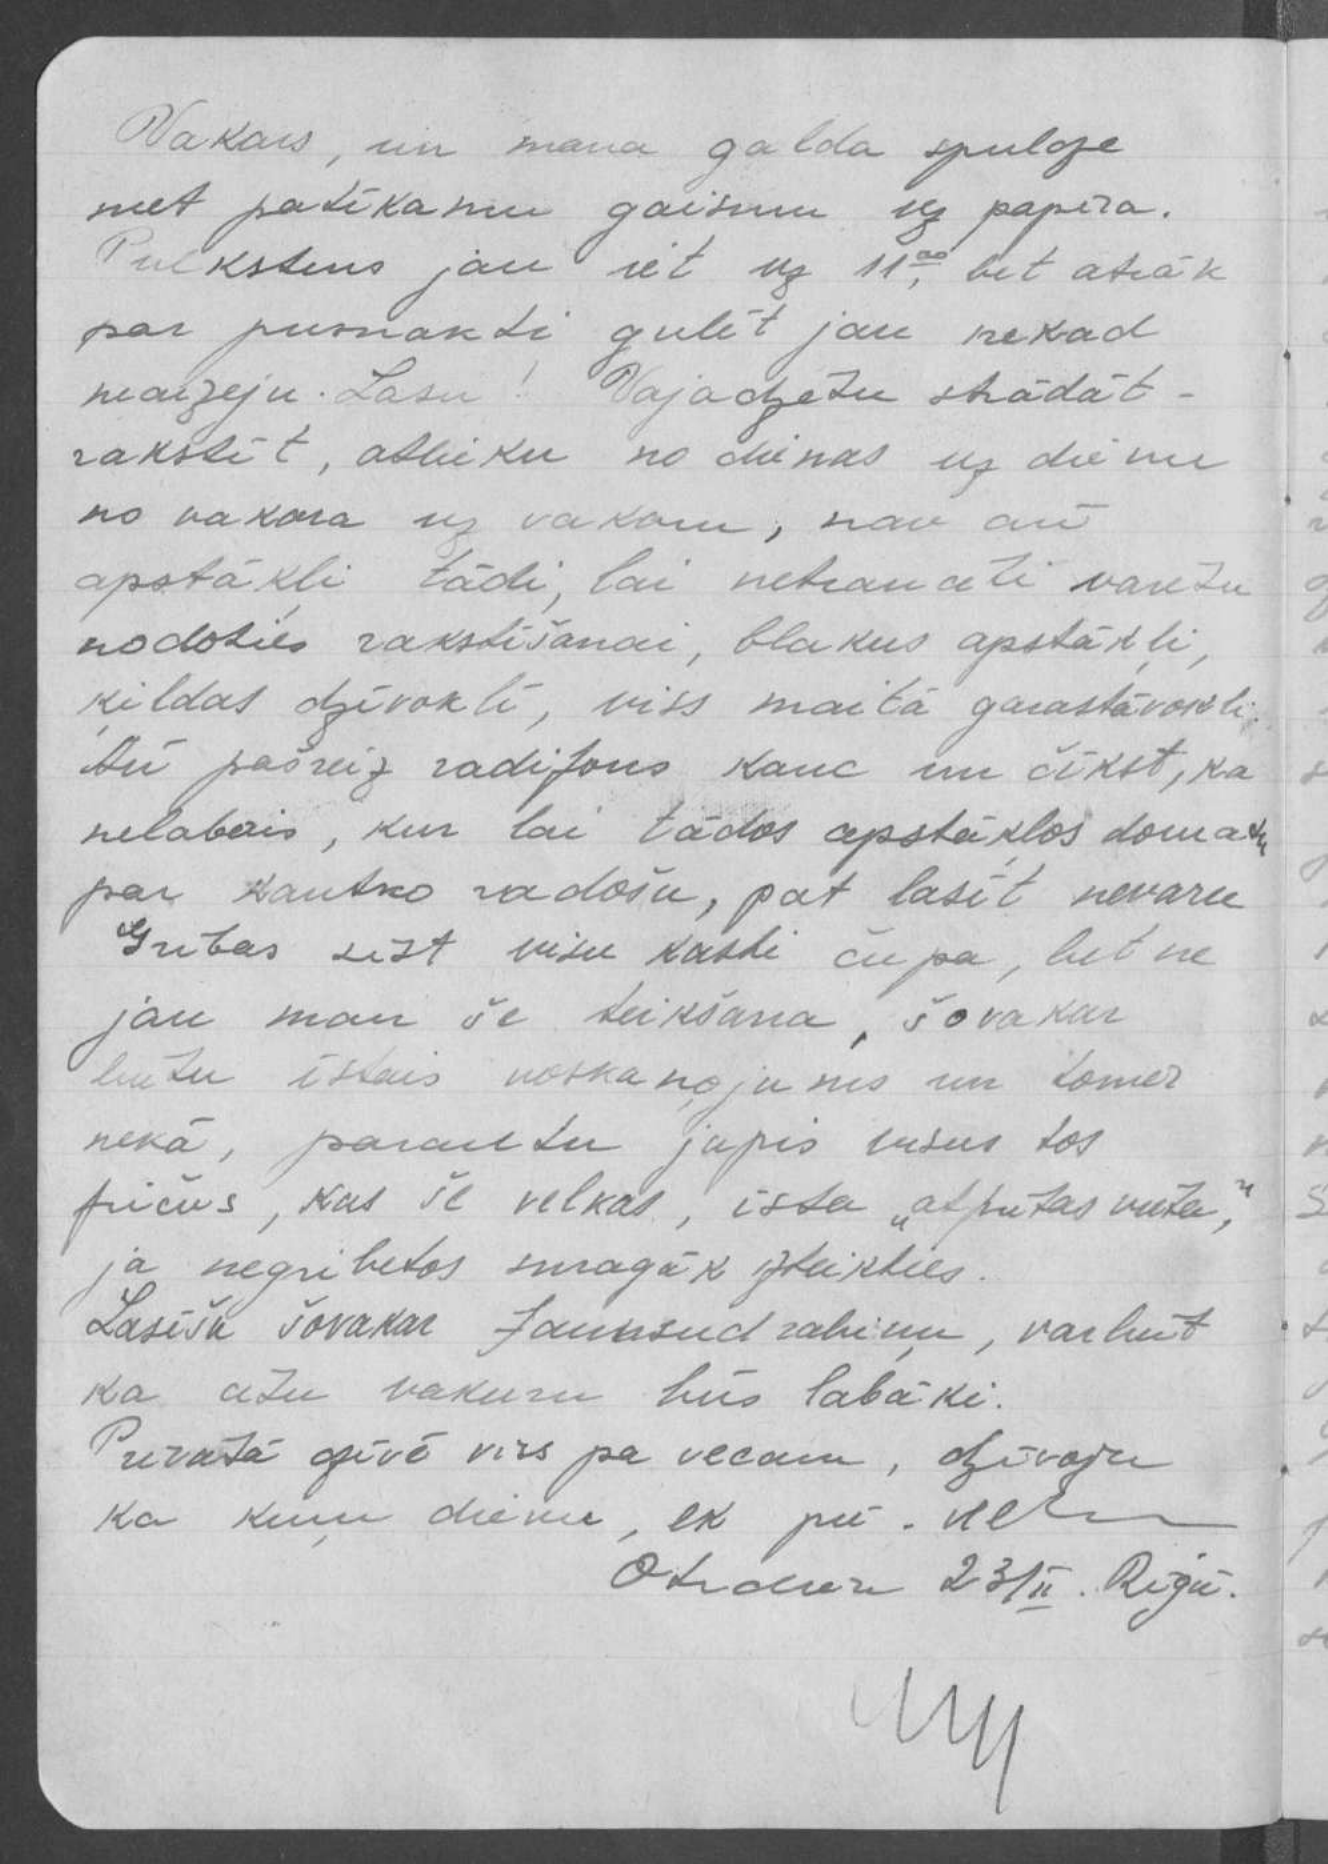 Vakars, un mana galda spuldze
met patīkamu gaismu uz papīra.
Pulkstens jau iet uz 11⁰⁰, bet ātrāk
par pusnakti gulēt jau nekad
neaizeju. Lasu! Vajadzētu strādāt -
rakstīt, atlieku no dienas uz dienu
no vakara uz vakaru, nav arī
apstākļi tādi, lai netraucēti varētu
nodoties rakstīšanai, blakus apstākļi,
ķildas dzīvoklī, viss maitā garastāvokli.
Arī pašreiz radifons kauc un čīkst, ka
nelabais, kur lai tādos apstākļos domātu
par kautko radošu, pat lasīt nevaru
Gribas sist visu kasti čupa, bet ne
jau man še teikšana, šovakar
butu īstais noskaņojums un tomer
nekā, parautu jupis visus tos
fričus, kas še velkas, īsta „atpūtas vieta,"
ja negribetos smagāk izteikties.
Lasīšu šovakar Jaunsudrabiņu, varbūt
ka citu vakaru būs labāki.
Privatā dzīvē viss pa vecam, dzīvoju
ka kuru dienu,
Otrdien 23/II. Rīgā.